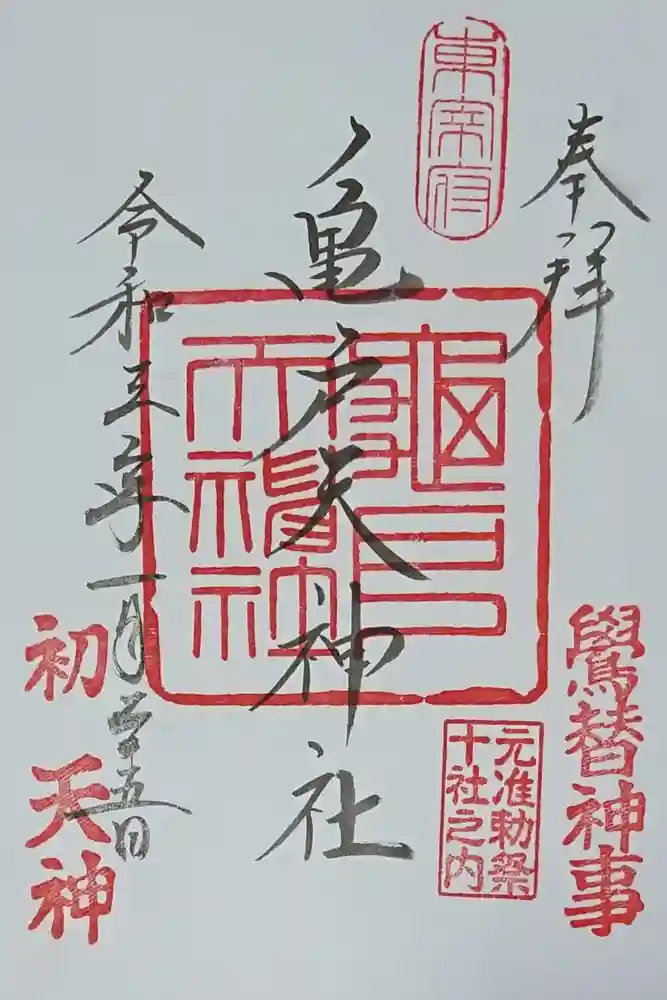 奉拝
東宰府
亀戸天神社
令和三年一月二十五日
鷽替神事
元准勅祭
十社之内
初天神